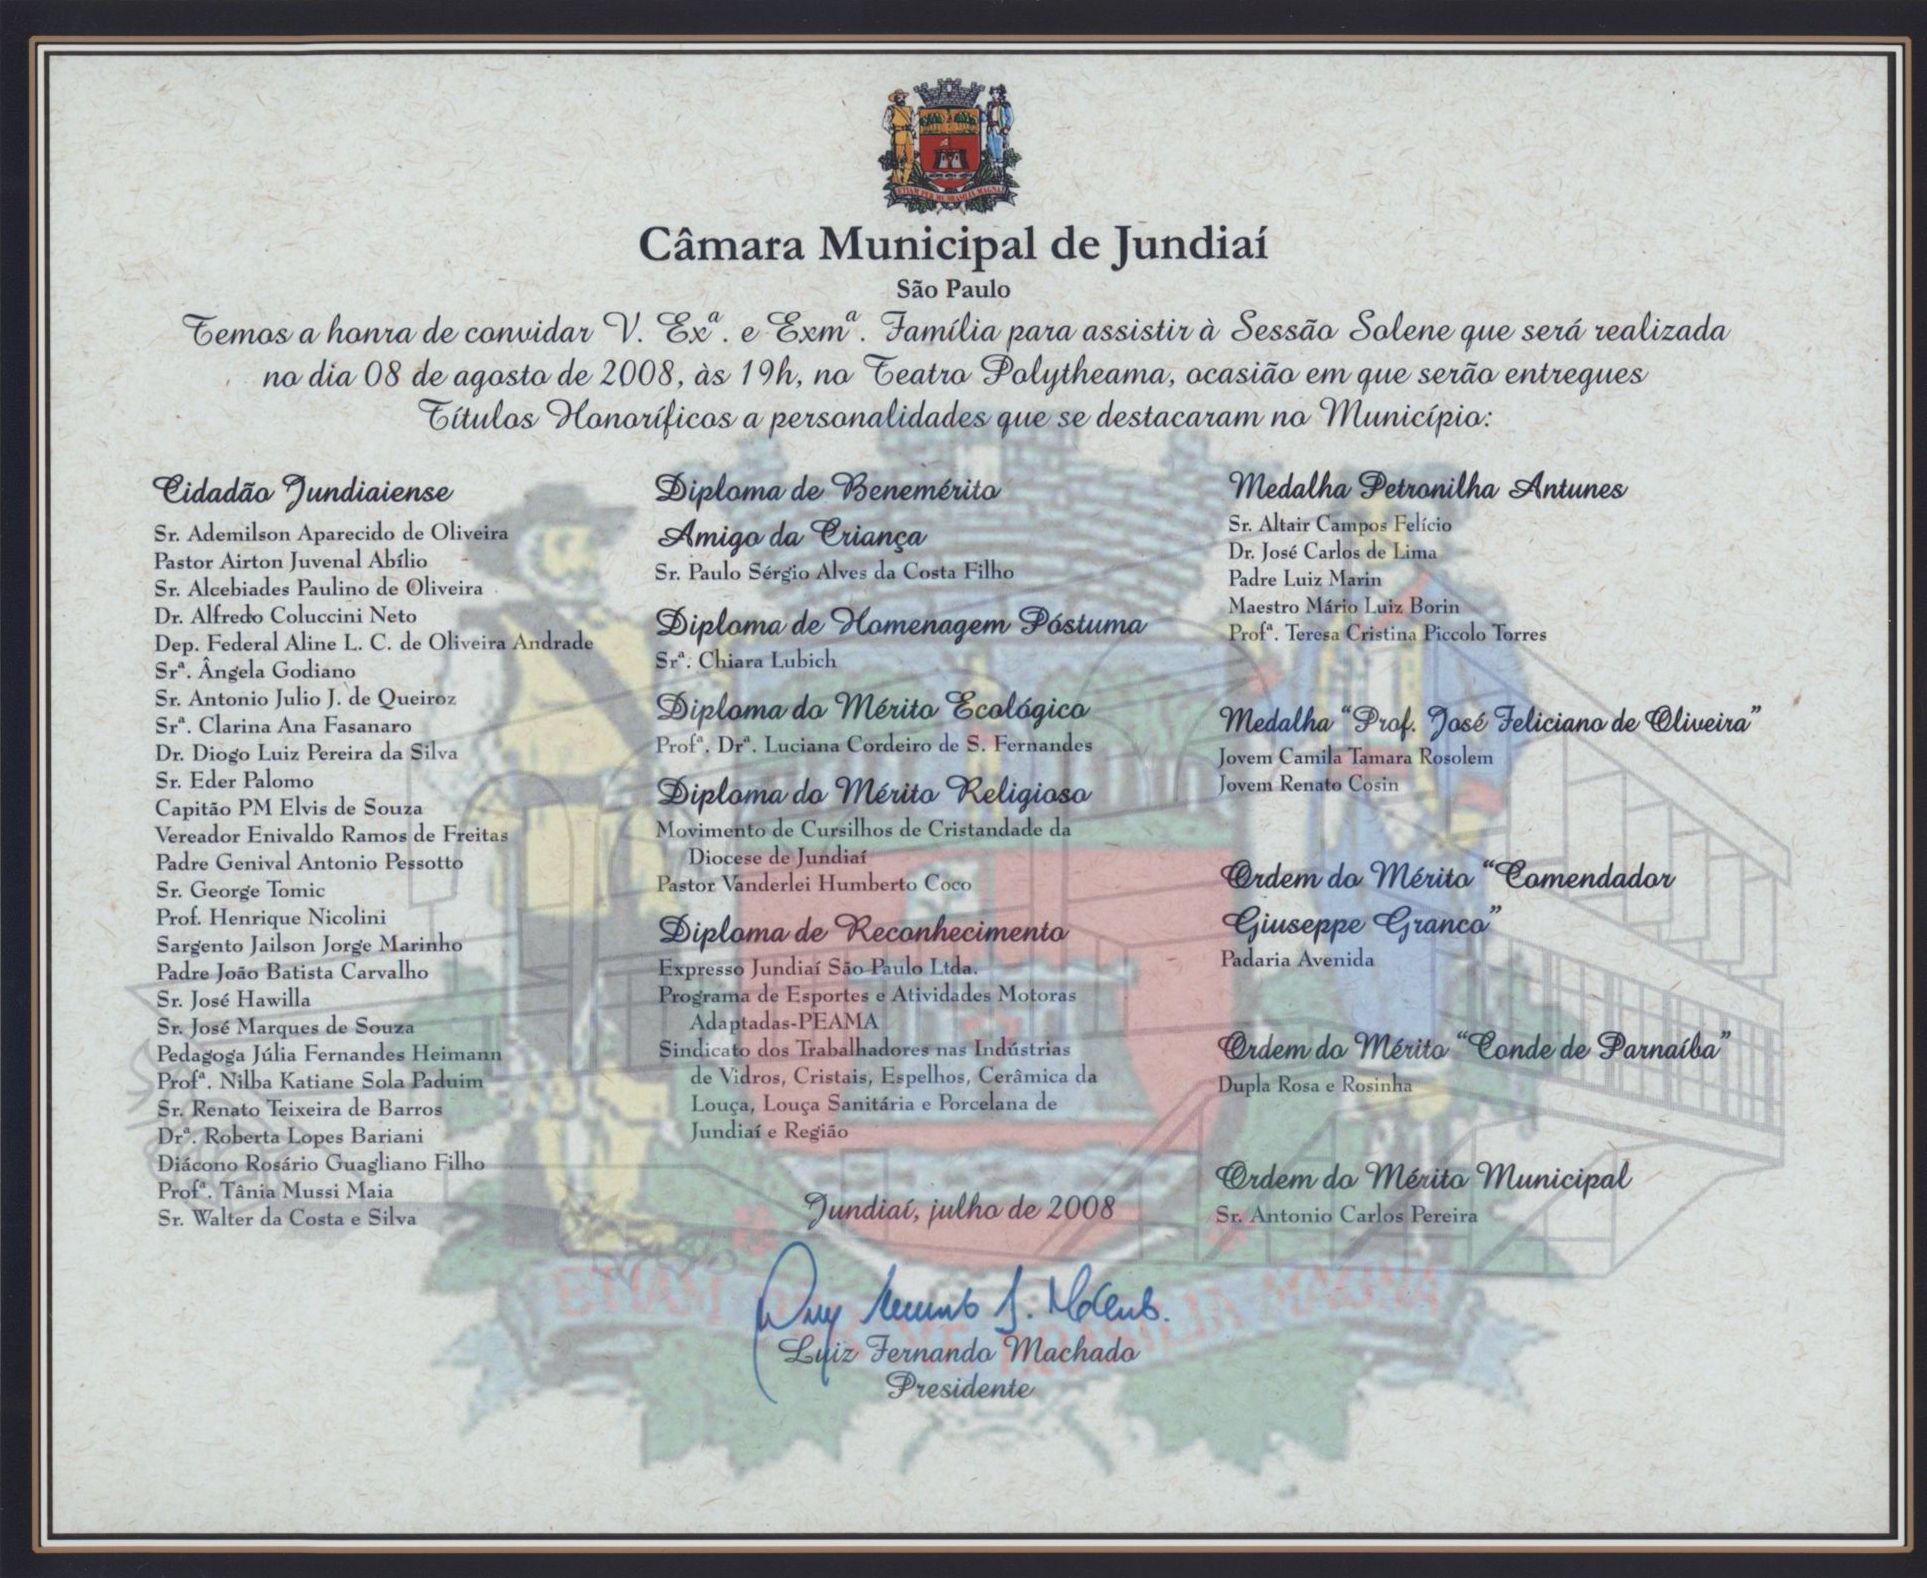 ETIAM PER ME BRASILIA MAGNA
Câmara Municipal de Jundiaí
São Paulo
Temos a honra de convidar V. Exª. e Exmª. Família para assistir à Sessão Solene que será realizada
no dia 08 de agosto de 2008, às 19h, no Teatro Polytheama, ocasião em que serão entregues
Títulos Honoríficos a personalidades que se destacaram no Município:
Cidadão Jundiaiense
Sr. Ademilson Aparecido de Oliveira
Pastor Airton Juvenal Abílio
Sr. Alcebiades Paulino de Oliveira
Dr. Alfredo Coluccini Neto
Dep. Federal Aline L. C. de Oliveira Andrade
Srª. Ângela Godiano
Sr. Antonio Julio J. de Queiroz
Srª. Clarina Ana Fasanaro
Dr. Diogo Luiz Pereira da Silva
Sr. Eder Palomo
Capitão PM Elvis de Souza
Vereador Enivaldo Ramos de Freitas
Padre Genival Antonio Pessotto
Sr. George Tomic
Prof. Henrique Nicolini
Sargento Jailson Jorge Marinho
Padre João Batista Carvalho
Sr. José Hawilla
Sr. José Marques de Souza
Pedagoga Júlia Fernandes Heimann
Profª. Nilba Katiane Sola Paduim
Sr. Renato Teixeira de Barros
Drª. Roberta Lopes Bariani
Diácono Rosário Guagliano Filho
Profª. Tânia Mussi Maia
Sr. Walter da Costa e Silva
Diploma de Benemérito
Amigo da Criança
Sr. Paulo Sérgio Alves da Costa Filho
Diploma de Homenagem Póstuma
Srª. Chiara Lubich
Diploma do Mérito Ecológico
Profª. Drª. Luciana Cordeiro de S. Fernandes
Diploma do Mérito Religioso
Movimento de Cursilhos de Cristandade da
Diocese de Jundiaí
Pastor Vanderlei Humberto Coco
Diploma de Reconhecimento
Expresso Jundiaí São Paulo Ltda.
Programa de Esportes e Atividades Motoras
Adaptadas-PEAMA
Sindicato dos Trabalhadores nas Indústrias
de Vidros, Cristais, Espelhos, Cerâmica da
Louça, Louça Sanitária e Porcelana de
Jundiaí e Região
Medalha Petronilha Antunes
Sr. Altair Campos Felício
Dr. José Carlos de Lima
Padre Luiz Marin
Maestro Mário Luiz Borin
Profª. Teresa Cristina Piccolo Torres
Medalha “Prof. José Feliciano de Oliveira”
Jovem Camila Tamara Rosolem
Jovem Renato Cosin
Ordem do Mérito “Comendador
Giuseppe Granco”
Padaria Avenida
Ordem do Mérito “Conde de Parnaíba”
Dupla Rosa e Rosinha
Ordem do Mérito Municipal
Sr. Antonio Carlos Pereira
Jundiaí, julho de 2008
Luiz Fernando Machado
Presidente